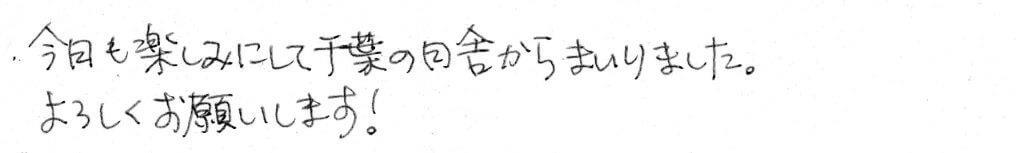 今日も楽しみにして千葉の田舎からまいりました。
よろしくお願いします!